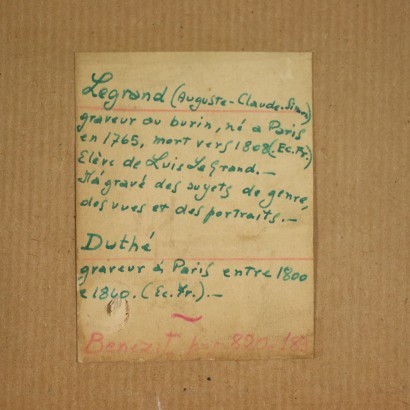 Legrand (Auguste-Claude-Simon)
graveur au burin, né a Paris
en 1765, mort vers 1808 (Ec. Fr.)
Elève de Luis Le Grand.—
Il a gravé des sujets de genre,
des vues et des portraits.—
Duthé
graveur à Paris entre 1800
e 1840. (Ec. Fr.).—
Benezit